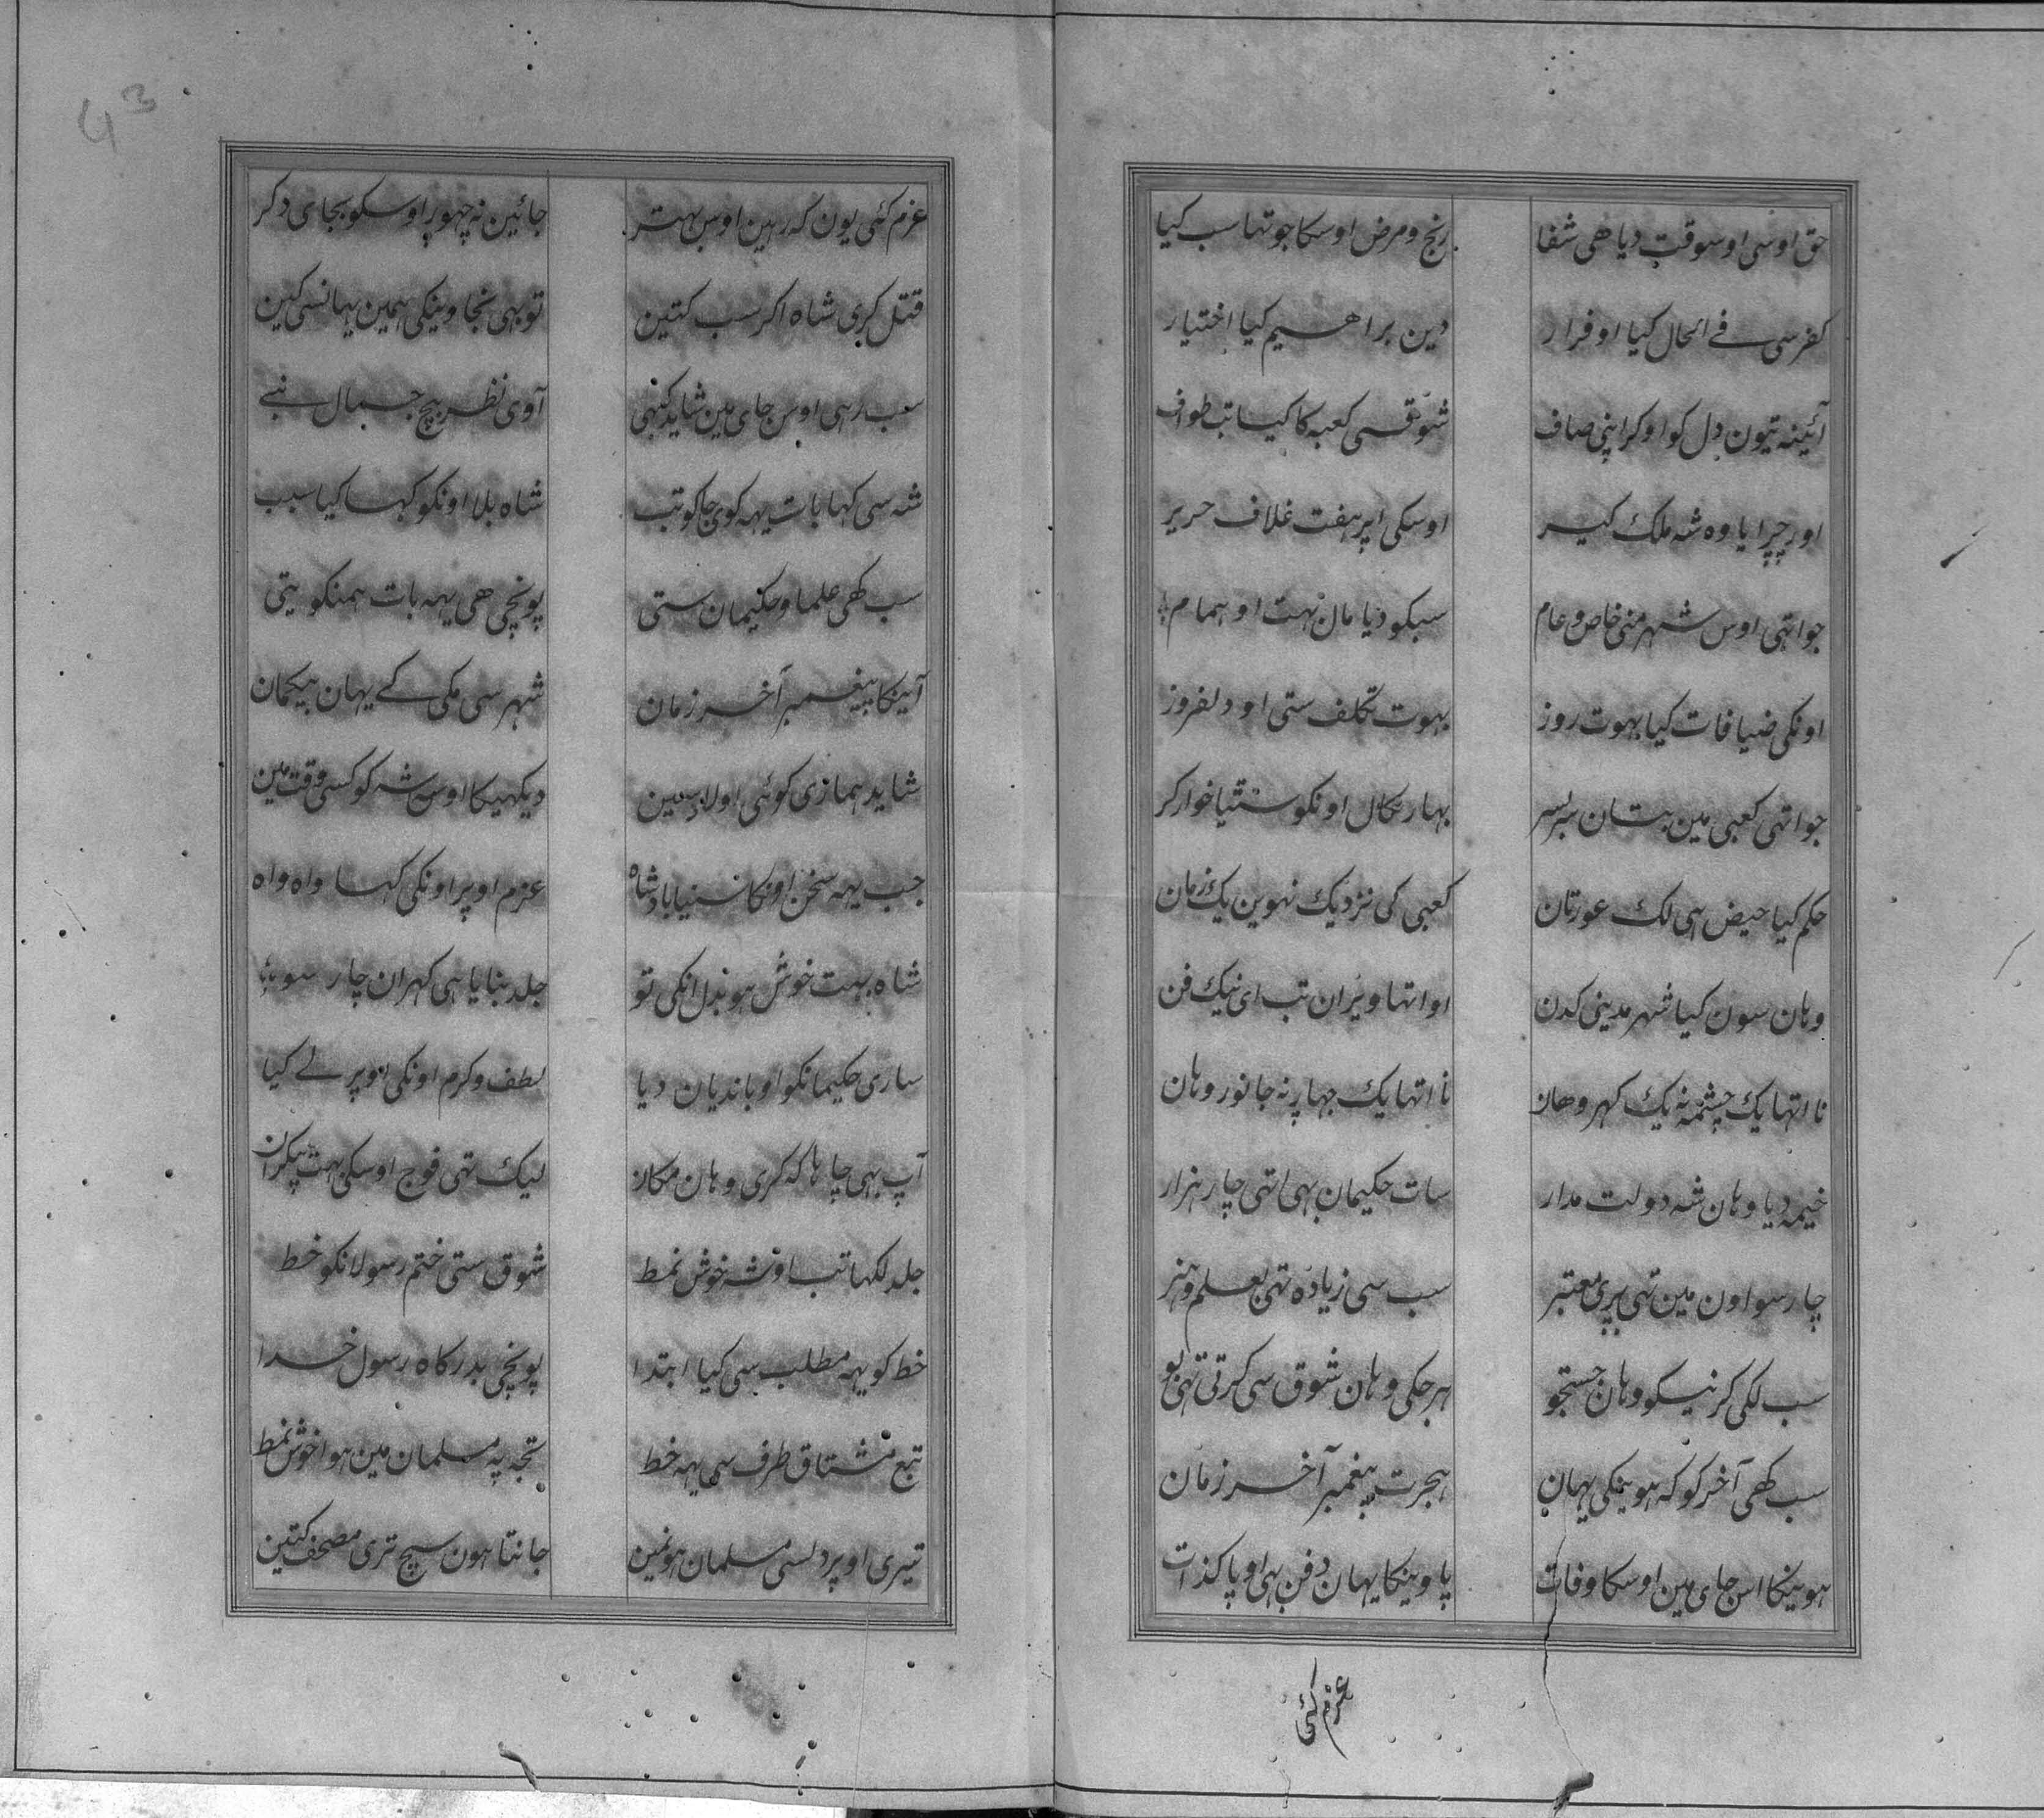 حق اوسی اوسوقت دیا هی شفا رنج و مرض اوسکا جو تها سب کیا
کفر سی فے الحال کیا او فرار دین براهیم کیا اختیار
آئینه تیون دل کو او کر اپنی صاف شوق سی کعبه کا کیا تب طواف
اور چڑایا وه شه ملک گیر اوسکی اپر هفت غلاف حریر
جو اتهی اوس شهر منی خاص و عام سبکو دیا مال بهت او همام
اونکی ضیافات کیا بهوت روز بهوت تکلف ستی او دلفروز
جو اتهی کعبی مین بتان سربسر بهار نکال اونکو سٹیا خوار کر
حکم کیا حیض سی لک عورتان کعبی کی نزدیک نهوین یک زمان
وهان سون کیا شهر مدینی کدن او اتها ویران تب ای نیک فن
نا اتها یک چشمه نه یک کهر وهان نا اتها یک جهاڑ نه جانور وهان
خیمه دیا وهان شه دولت مدار سات حکیمان بهی اتهی چار هزار
چار سو اون مین تهی بڑی معتبر سب سی زیاده تهی بعلم و هنر
سب لکی کرنیکو وهان جستجو هر جکی وهان شوق سی کرتی تهی بو
سب کهی آخر کو که هوینکی یهان هجرت پیغمبر آخر زمان
هوینکا اس جای مین اوسکا وفات پاوینکا یهان دفن بهی او پاکذات
عزم کئی
عزم کئی یون که رهین اوس بهتر جائین نه چهوڑ اوسکو بجای دکر
قتل کری شاه اکر سب کتین تو بهی نجاوینکی همین یهانسی کین
سب رهی اوس جای مین شاید کبهی آوی نظر بیچ جمال نبے
شه سی کها بات یهه کوئی جا کو تب شاه بلا اونکو کها کیا سبب
سب کهی علما و حکیمان ستی پونچی هی یهه بات همنکو یتی
آینکا پیغمبر آخر زمان شهر سی مکی کے یهان بیکمان
شاید همارٰی کوئی اولاد سین دیکهیکا اوس شه کو کسی وقت مین
جب یهه سخن اونکا سنیا بادشاه عزم اوپر اونکی کها واه واه
شاه بهت خوش هو بدل انکی تو جلد بنایا هی کهران چار سو
ساری حکیمانکو او باندیان دیا لطف و کرم اونکی اوپر لے کیا
آپ بهی چاها که کری وهان مکان لیک تهی فوج اوسکی بهت بیکران
جلد لکها تب او شه خوش نمط شوق ستی ختم رسولانکو خط
خط کو یهه مطلب سی کیا ابتدا پونچی بدرکاه رسول خدا
تبع مشتاق طرف سی یهه خط تجه په مسلمان مین هوا خوش نمط
تیری اوپر دلسی مسلمان هو مین جانتا هون سچ تری مصحف کتین
43